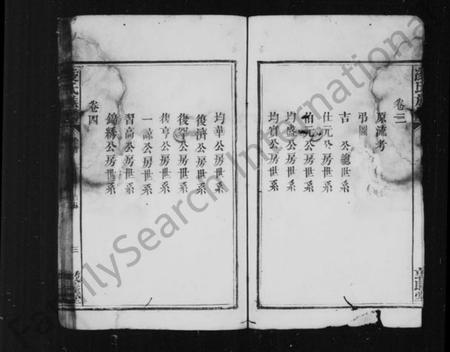 卷三
原流考
弔圖
吉公總世系
仕元公房世系
伯元公房世系
均盛公房世系
均寶公房世系
均華公房世系
後濟公房世系
後學公房世系
後亨公房世系
一誠公房世系
習高公房世系
錦綉公房世系
卷四
三
FamilySearch International